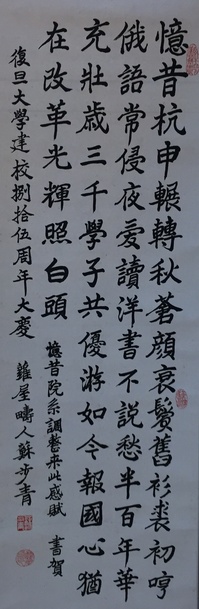 憶昔杭申輾轉秋蒼顏衰鬢舊衫裘初哼
俄語常侵夜愛讀洋書不說愁半百年華
充壯歲三千學子共優游如今報國心猶
在改革光輝照白頭
憶昔院系調整来此感賦 書賀
復旦大學建校捌拾伍周年大慶 蘿屋疇人蘇步青